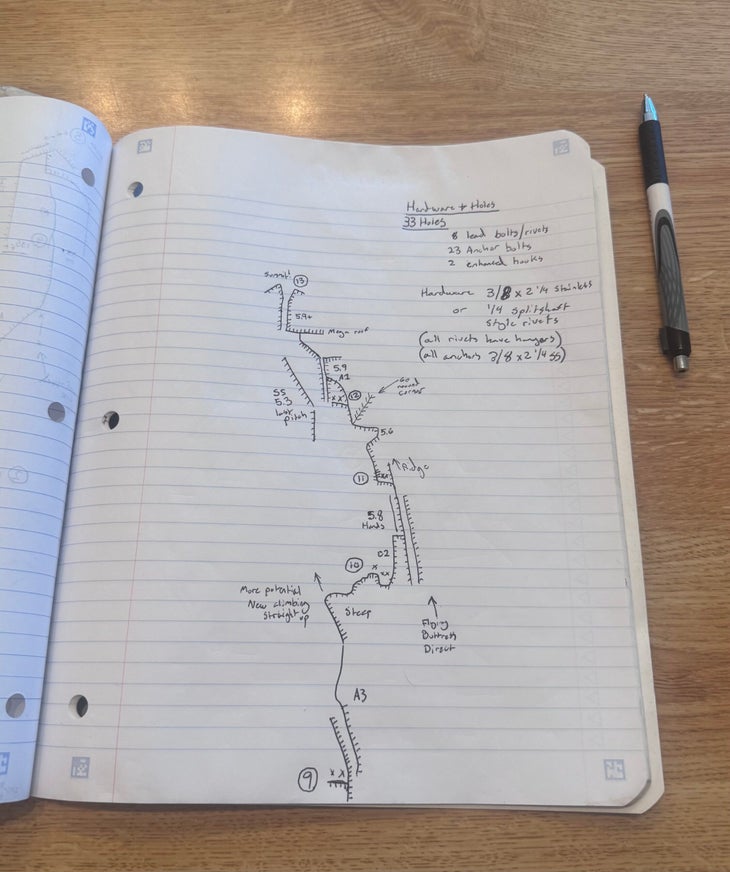 Hardware + Holes
33 Holes
8 lead bolts/rivets
23 Anchor bolts
2 enhanced hooks
Hardware 3/8 x 2 1/4 stainless
or 1/4 splitshaft
style rivets
(all rivets have hangers)
(all anchors 3/8 x 2 1/4 SS)
Summit
13
5.9+
Mega roof
5.9
A1
SS
5.3
last
pitch
x x
12
Go
around
corner
5.6
11
xx
Ridge
5.8
Hands
C2
10
x
xx
More potential
New climbing
Straight
up
Steep
Flying
Buttress
Direct
A3
9
x x